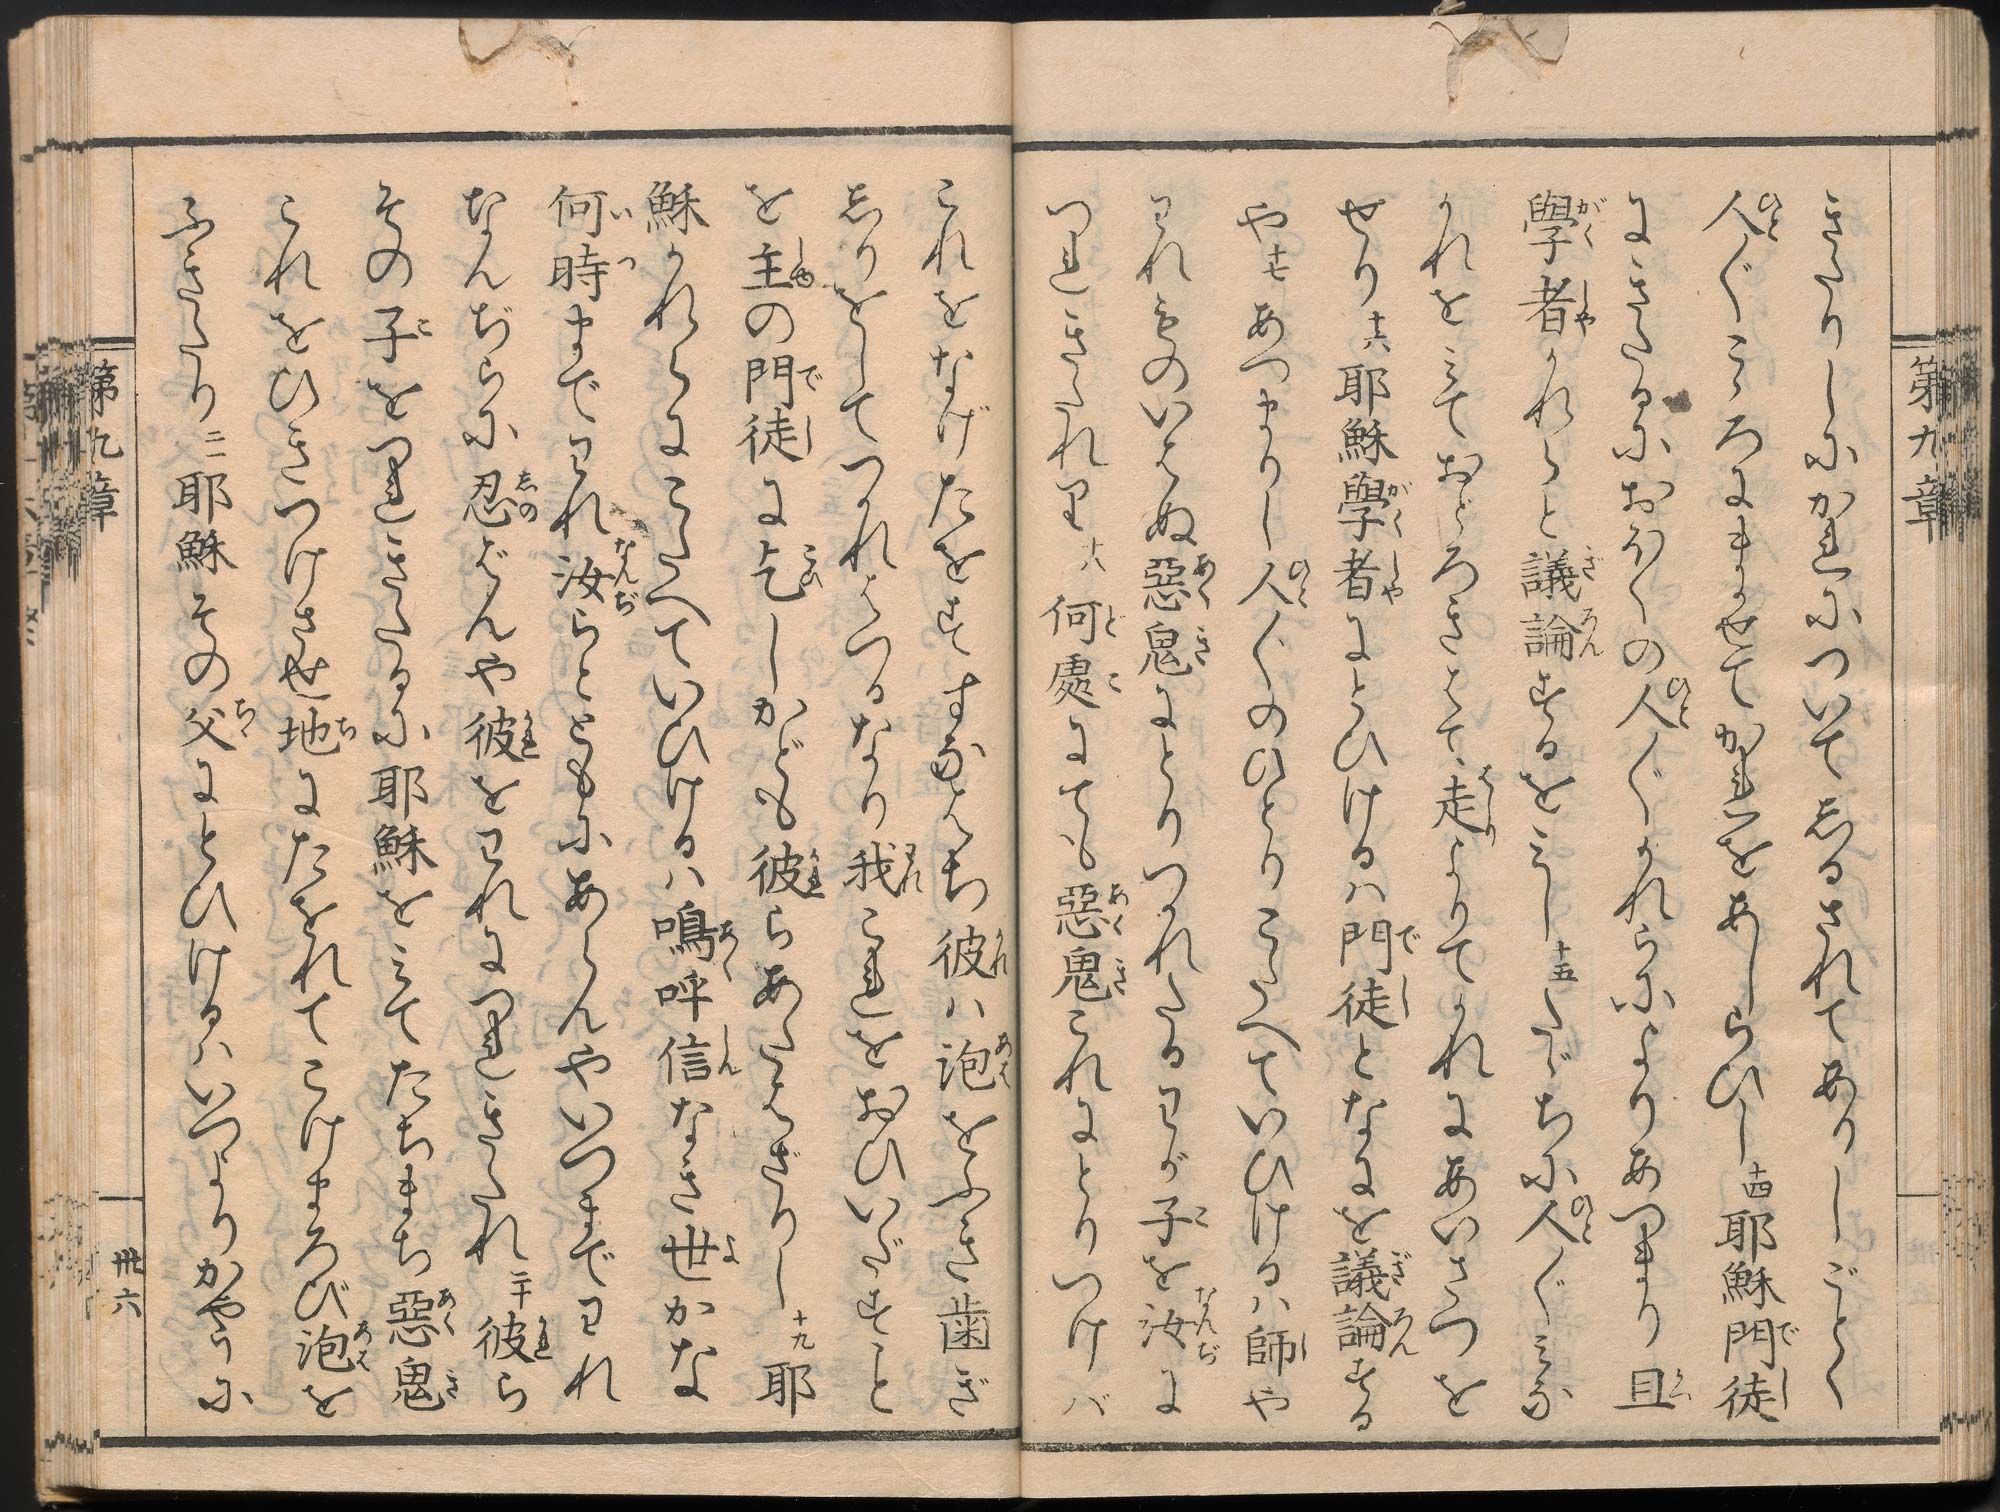 第九章
きたりしにかれについてしるされてありしごとく
人〴〵こゝろにまかせてかれをあしらひし十四耶穌門徒
にきたるにおほくの人〴〵かれらによりあつまり且
學者かれらと議論するをみし十五たゞちに人〴〵みな
かれをみておどろきはて、走よりてかれにあいさつを
せり十六耶穌學者にとひけるハ門徒となにを議論する
や十七あつまりし人〴〵のひとりこたへていひけるハ師や
われものいはぬ惡鬼にとりつかれたるわが子を汝に
つれきたれり十八何處にても惡鬼これにとりつけバ
これをなげたをすすなはち彼ハ泡をふき歯ぎ
しりをしてつかれはつるなり我これをおひいだすこと
を主の門徒に乞しかども彼らあたはざりし十九耶
穌かれらにこたへていひけるハ鳴呼信なき世かな
何時までわれ汝らとともにあらんやいつまでわれ
なんぢらに忍ばんや彼をわれにつれきたれ二十彼ら
その子をつれきたるに耶穌をみてたちまち惡鬼
これをひきつけさせ地にたをれてこけまろび泡を
ふきたり二一耶穌その父にとひけるハいつよりかやうに
第九章
卅六